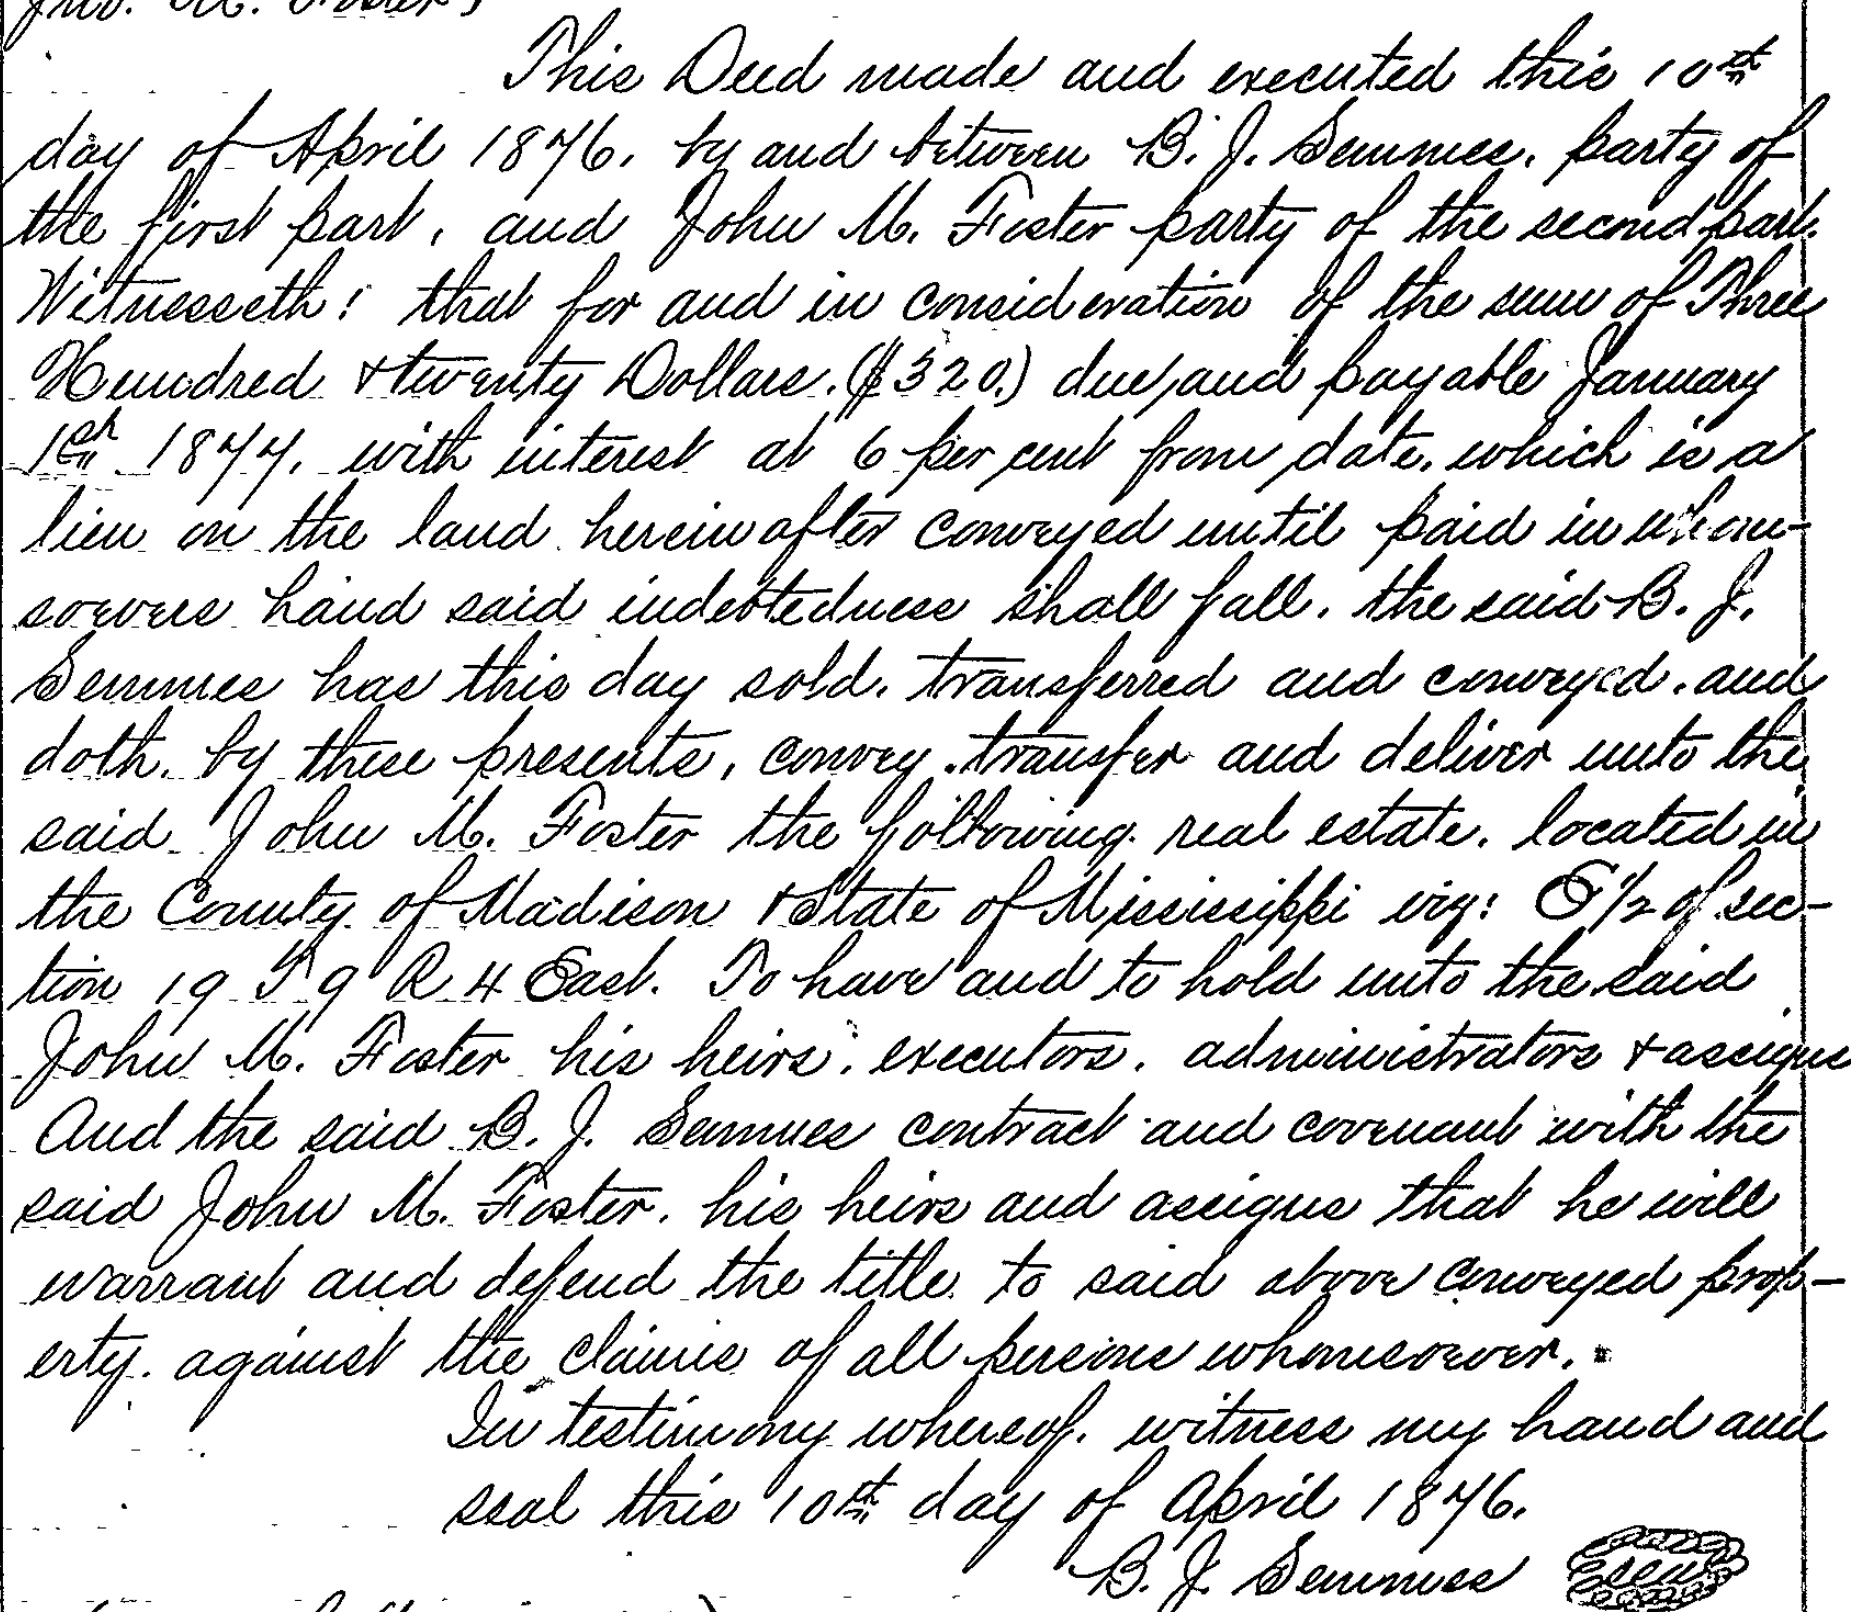 Jno. M. Foster
This Deed made and executed this 10th
day of April 1876. by and between B. J. Semmes. party of
the first part, and John M. Foster party of the second part.
Witnesseth: that for and in consideration of the sum of Three
Hundred & twenty Dollars. ($320.) due and payable January
1st 1877. with interest at 6 per cent from date. which is a
lien on the land hereinafter conveyed until paid in whom-
soevers hand said indebtedness shall fall. the said B. J.
Semmes has this day sold. transferred and conveyed. and
doth. by these presents, convey. transfer and deliver unto the
said John M. Foster the following real estate. located in
the County of Madison & State of Mississippi viz: E 1/2 of sec-
tion 19 T 9 R 4 East. To have and to hold unto the said
John M. Foster his heirs. executors. administrators & assigns
And the said B. J. Semmes contract and covenant with the
said John M. Foster. his heirs and assigns that he will
warrant and defend the title to said above conveyed prop-
erty. against the claims of all persons whomsoever.
In testimony whereof. witness my hand and
seal this 10th day of April 1876.
B. J. Semmes seal